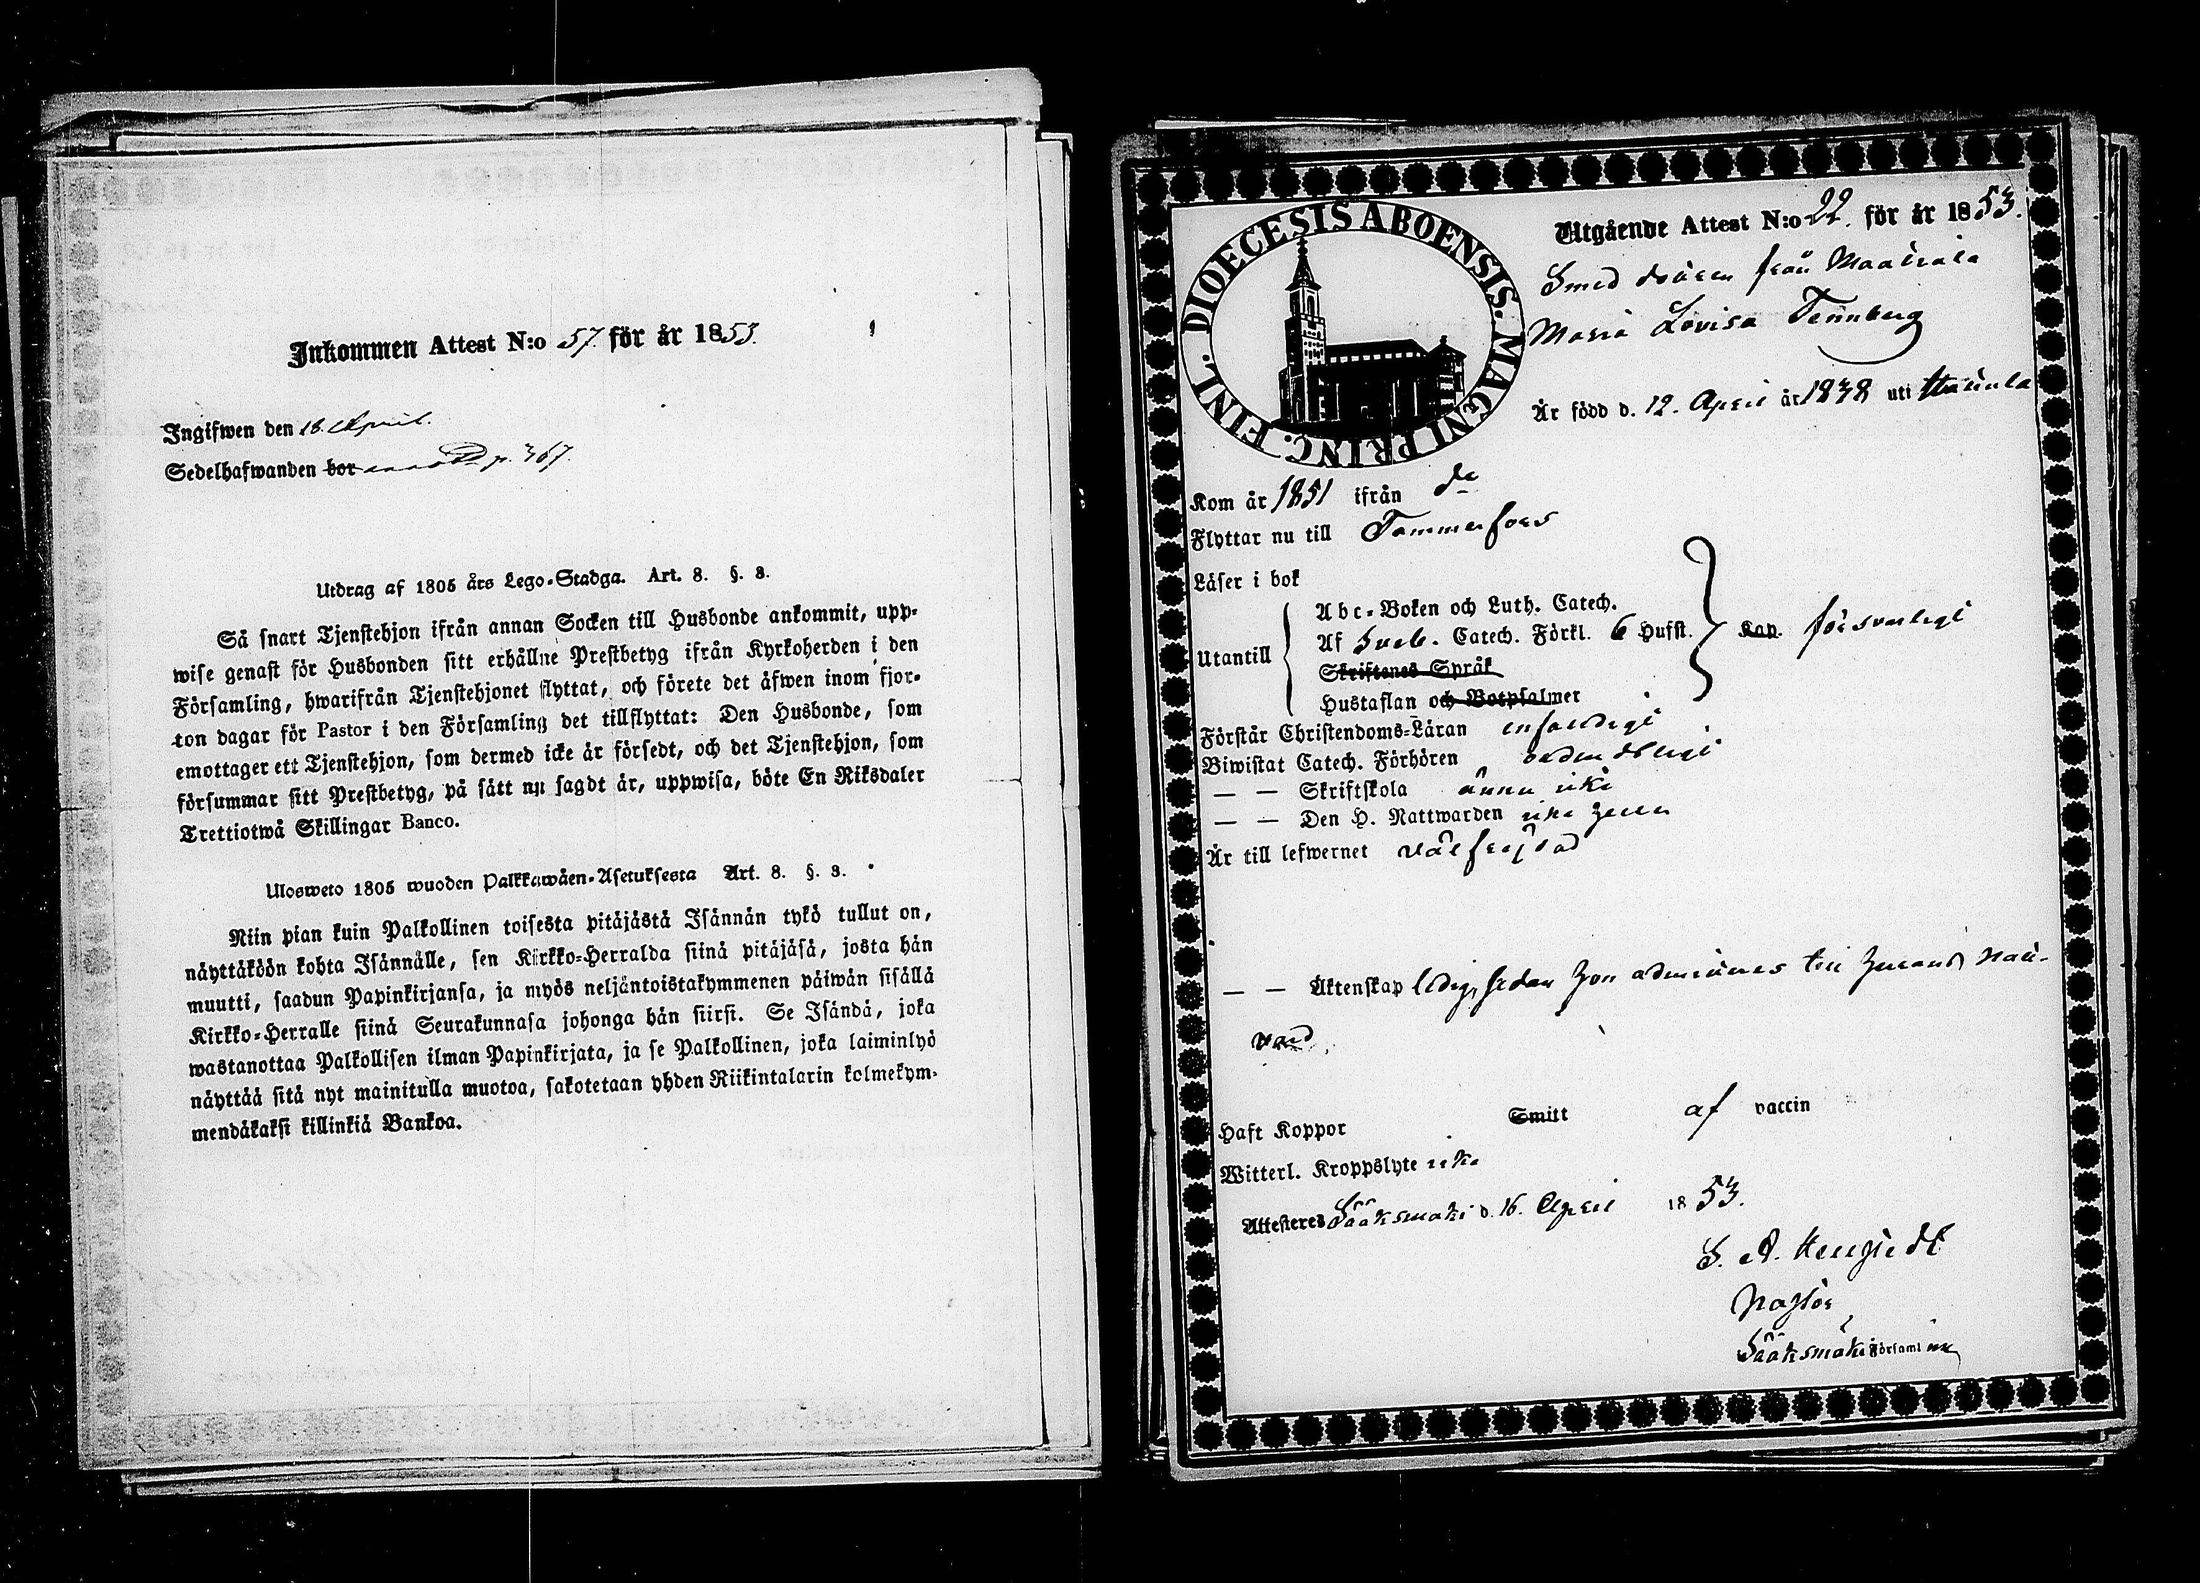 Inkommen Attest N:o 57. för år 1853.
Ingifwen den 18. April.
Sedelhafwanden bor p. 367.
Utdrag af 1805 års Lego-Stadga. Art. 8. §. 3.
Så snart Tjenstehjon ifrån annan Socken till Husbonde ankommit, upp-
wise genast för Husbonden sitt erhållne Prestbetyg ifrån Kyrkoherden i den
Församling, hwarifrån Tjenstehjonet flyttat, och förete det äfwen inom fjor-
ton dagar för Pastor i den Församling det tillflyttat: Den Husbonde, som
emottager ett Tjenstehjon, som dermed icke är försedt, och det Tjenstehjon, som
försummar sitt Prestbetyg, på sätt nu sagdt är, uppwisa, böte En Riksdaler
Trettiotwå Skillingar Banco.
Ulosweto 1805 wuoden Palkkawäen-Asetuksesta Art. 8. §. 3.
Niin pian kuin Palkollinen toisesta pitäjästä Isännän tykö tullut on,
näyttäköön kohta Isännälle, sen Kirkko-Herralda siinä pitäjäsä, josta hän
muutti, saadun Papinkirjansa, ja myös neljäntoistakymmenen päiwän sisällä
Kirkko-Herralle siinä Seurakunnasa johonga hän siirsi. Se Isändä, joka
wastanottaa Palkollisen ilman Papinkirjata, ja se Palkollinen, joka laiminlyö
näyttää sitä nyt mainitulla muotoa, sakotetaan yhden Riikintalarin kolmekym-
mendäkaksi killinkiä Bankoa.
DIOECESIS ABOENSIS. MAGNI PRINC. FINL.
Utgående Attest N:o 22. för år 1853.
Smed från
Maria Lovisa Tennberg
Är född d. 12. April år 1838 uti
Kom år 1851 ifrån do
Flyttar nu till Tammerfors
Läser i bok
Abc-Boken och Luth. Catech.
Utantill Af Sveb. Catech. Förkl. 6 Hufst. Kap. försvarligt
Skriftenes Språk
Hustaflan och Botpsalmer
Förstår Christendoms-Läran enfaldigt
Biwistat Catech. Förhören ordentligt
— — Skriftskola ännu icke
— — Den H. Nattwarden icke heller
Är till lefwernet välfrejdad
— — Äktenskap ledig, sedan hon admitteras till Herrans Natt-
vard.
Haft Koppor Smitt af vaccin
Witterl. Kroppslyte icke
Attesteres Sääksmäki d. 16. April 1853.
S. A.
Pastor
Sääksmäki Församling